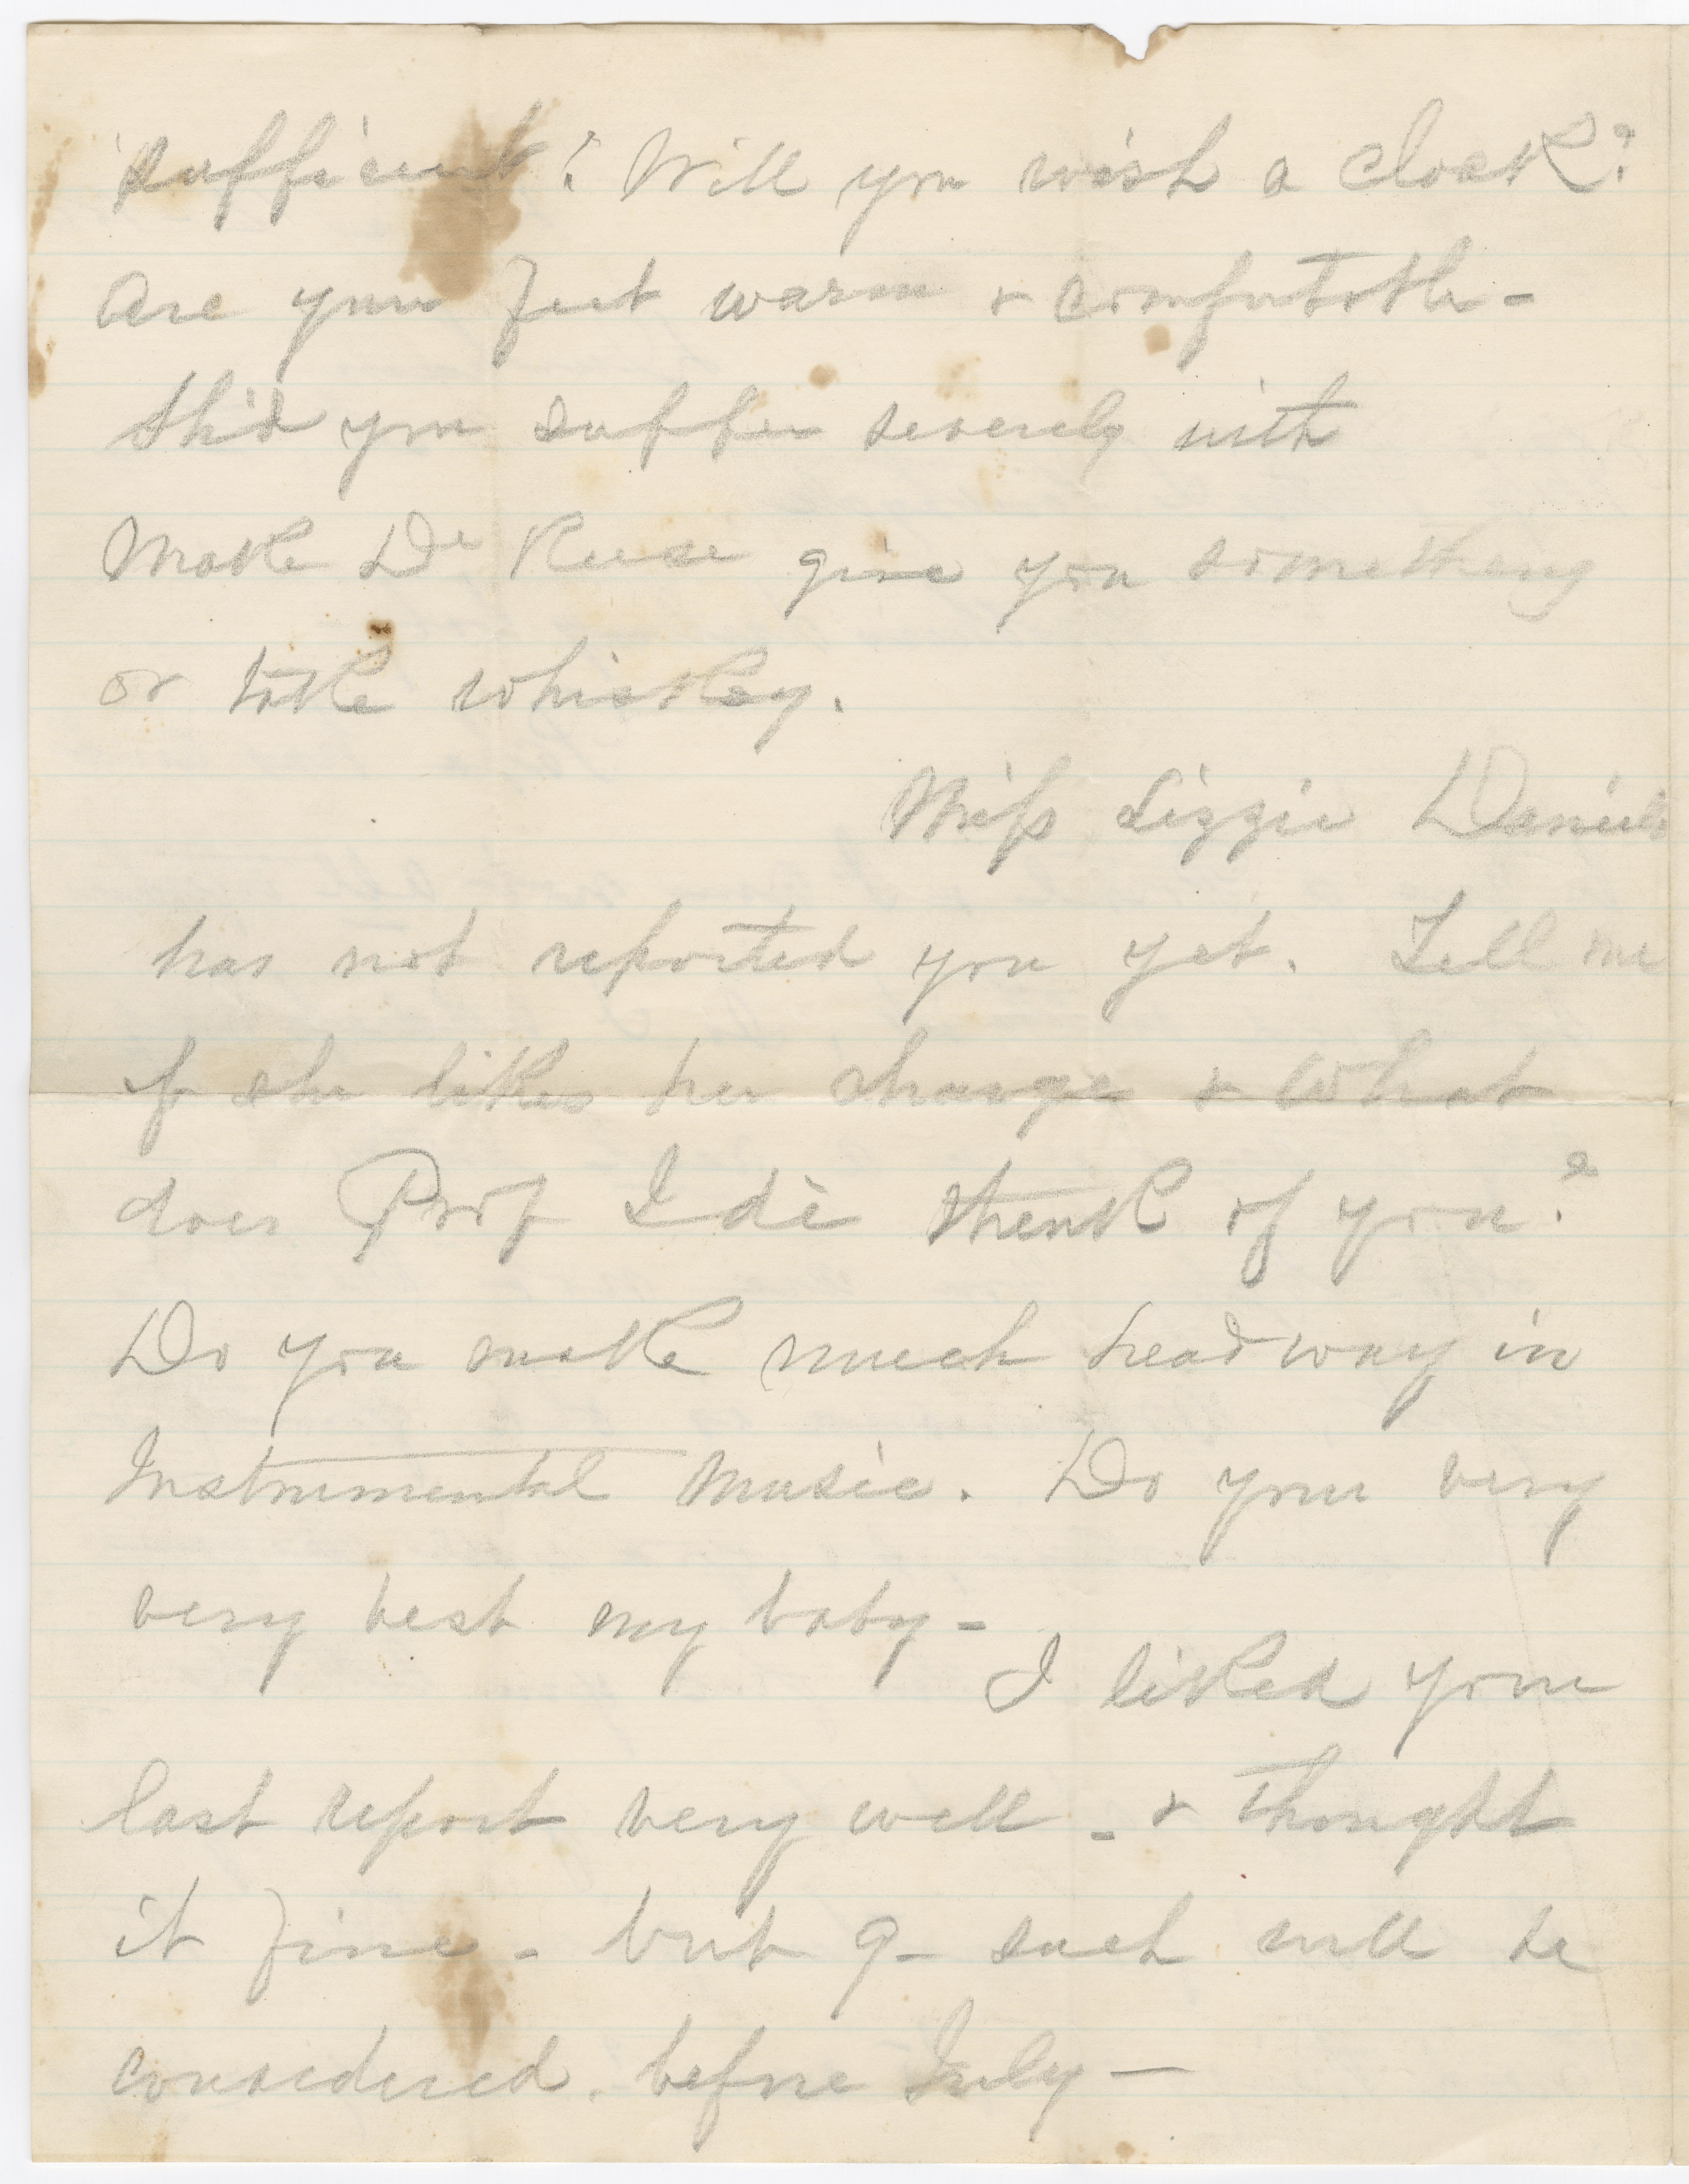 sufficient? Will you wish a cloak?
Are your feet warm & comfortable -
Sh'd you suffer severely with
Make Dr Reese give you something
or take whiskey.
Miss Lizzie Daniels
has not reported you yet. Tell me
if she likes her charge & What
does Prof Ide think of you?
Do you make much headway in
Instrumental Music. Do your very
very best my baby -
I liked your
last report very well - & thought
it fine - but 9- such will be
considered. before July —